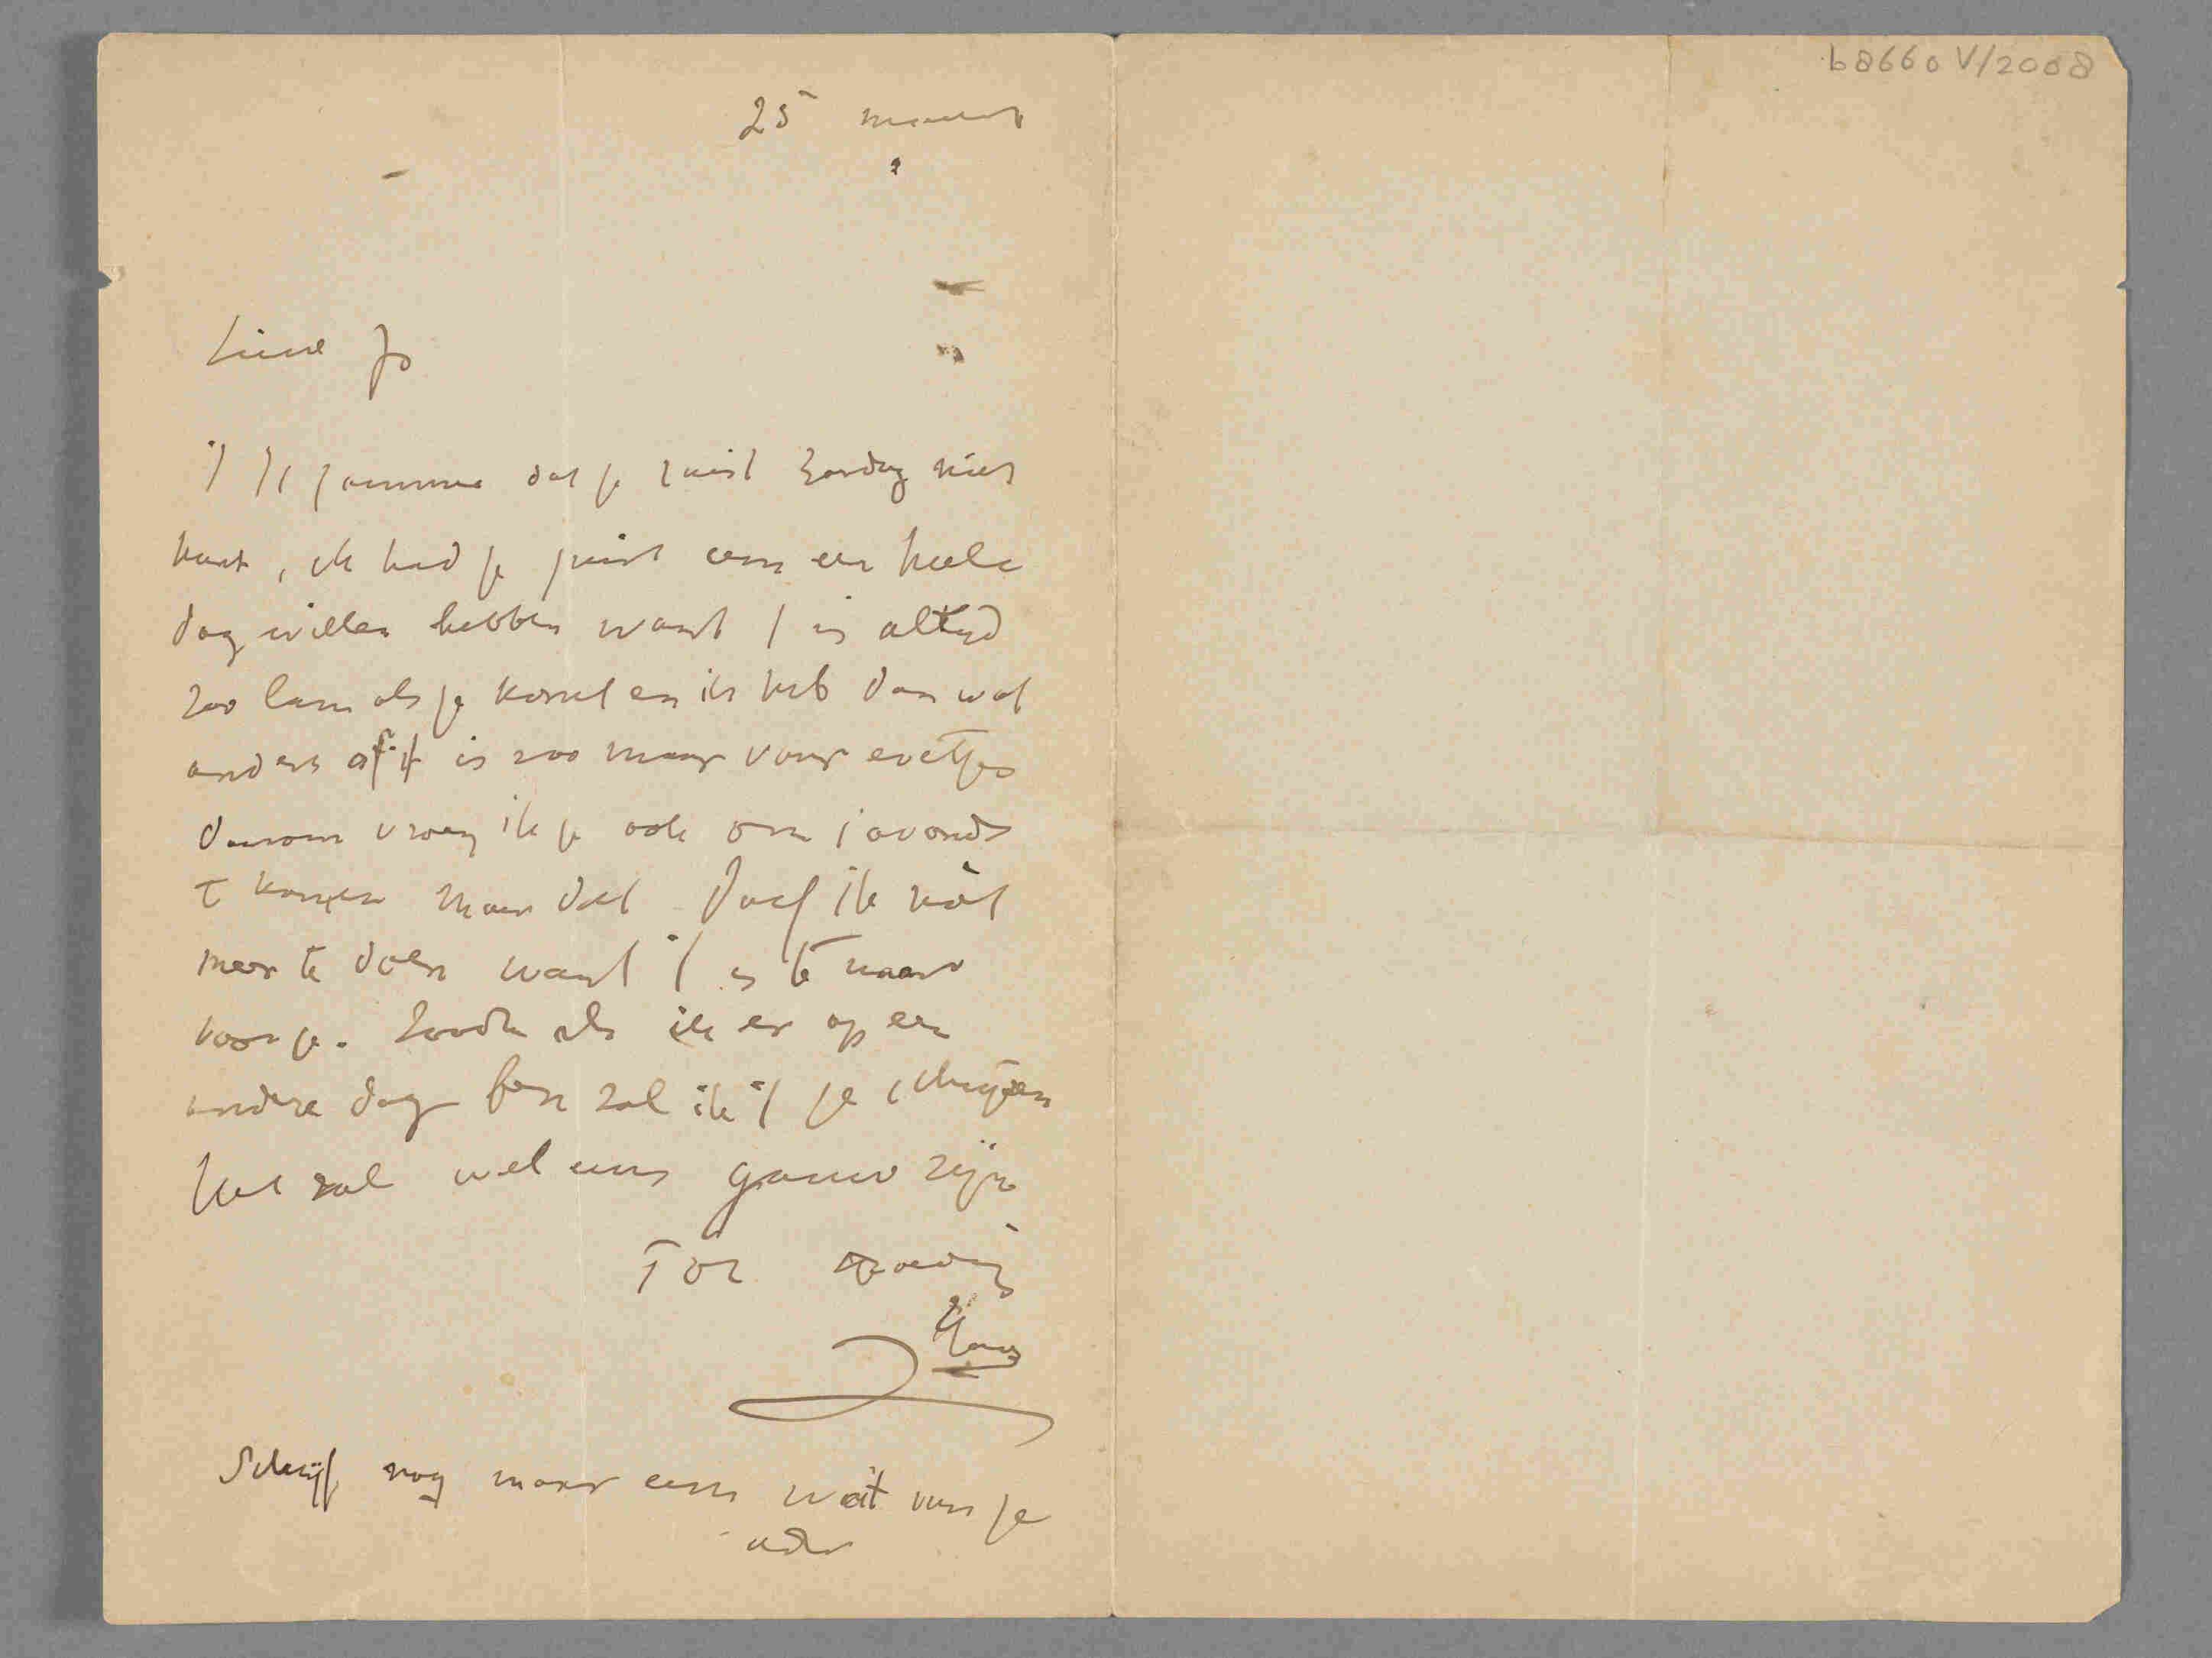 b8660 V/2008
25 maart
Lieve Jo
't Is jammer dat je juist Zondag niet
kunt, ik had je juist eens een heele
dag willen hebben want 't is altijd
zoo lam als je komt en ik heb dan wat
anders of it is zoo maar voor eventjes
daarom vroeg ik je ook om s'avonds
te komen maar dat durf ik niet
meer te doen want 't is te naar
voor je. Zoodra als ik er op een
andere dag ben zal ik 't je schrijven
het zal wel eens gauw zijn
Tot spoedig
Schrijf nog maar eens wat van je